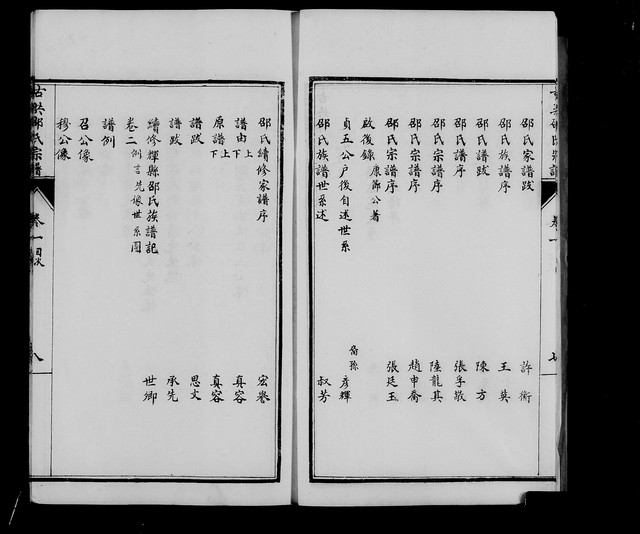 邵氏家譜跋 許衡
邵氏族譜序 王英
邵氏譜跋 陳方
邵氏譜序 張孚敬
邵氏宗譜序 陸龍其
邵氏宗譜序 趙申喬
邵氏宗譜序 張廷玉
啟後錄 康節公著
貞五公戶後自述世系 裔孫 彥輝
邵氏族譜世系述 叔芳
邵氏續修家譜序 宏譽
譜由上下 真容
原譜上下 真容
譜跋 思文
譜跋 承先
續修輝縣邵氏族譜記 世卿
卷二 例言先嫄世系圖
譜例
召公像
穆公像
古共邵氏宗譜 卷一 目次 八